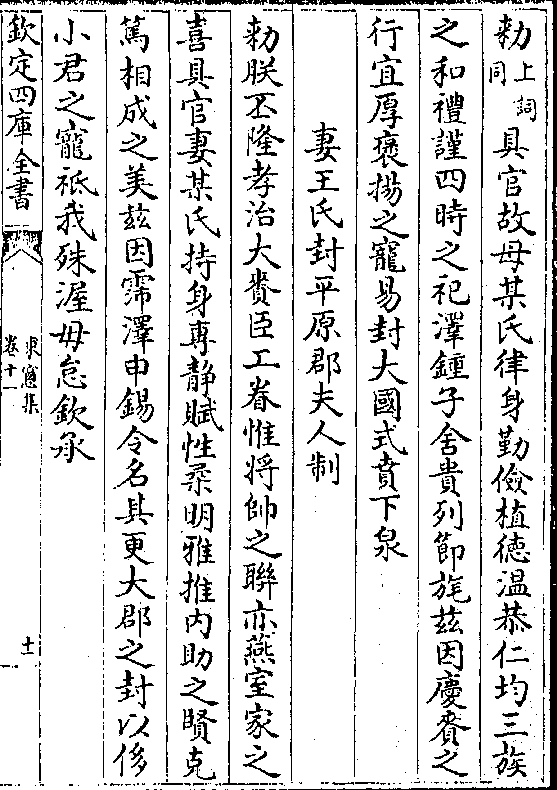 勅上詞同具官故母某氏律身勤儉植徳温恭仁均三族
之和禮謹四時之祀澤鍾子舍貴列節旄兹因慶賚之
行宜厚褒揚之寵易封大國式賁下泉
妻王氏封平原郡夫人制
勅朕丕隆孝治大賚臣工眷惟將帥之聯亦燕室家之
喜具官妻某氏持身専静賦性柔明雅推内助之賢克
篤相成之美兹因霈澤申錫令名其更大郡之封以侈
小君之寵祗我殊渥毋怠欽承
欽定四庫全書
東窻集
卷十一
十一